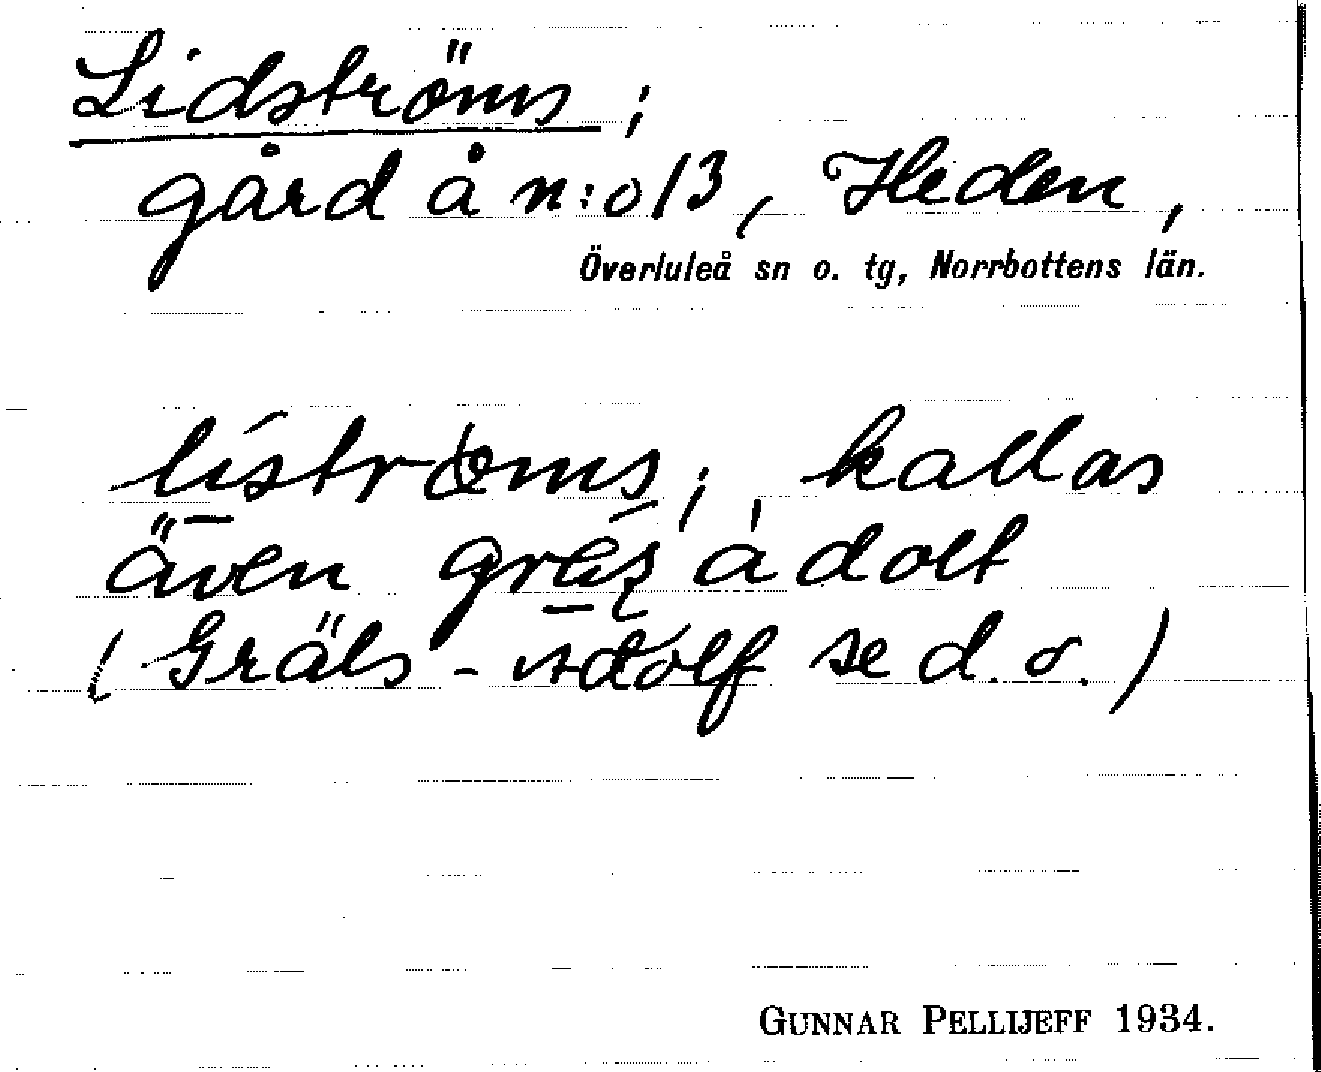 Lidströms ;
gård å n:o 13, Heden,
Överluleå sn o. tg, Norrbottens län.
kallas
även
(Gräls-Adolf se d.o.)
GUNNAR PELLIJEFF 1934.